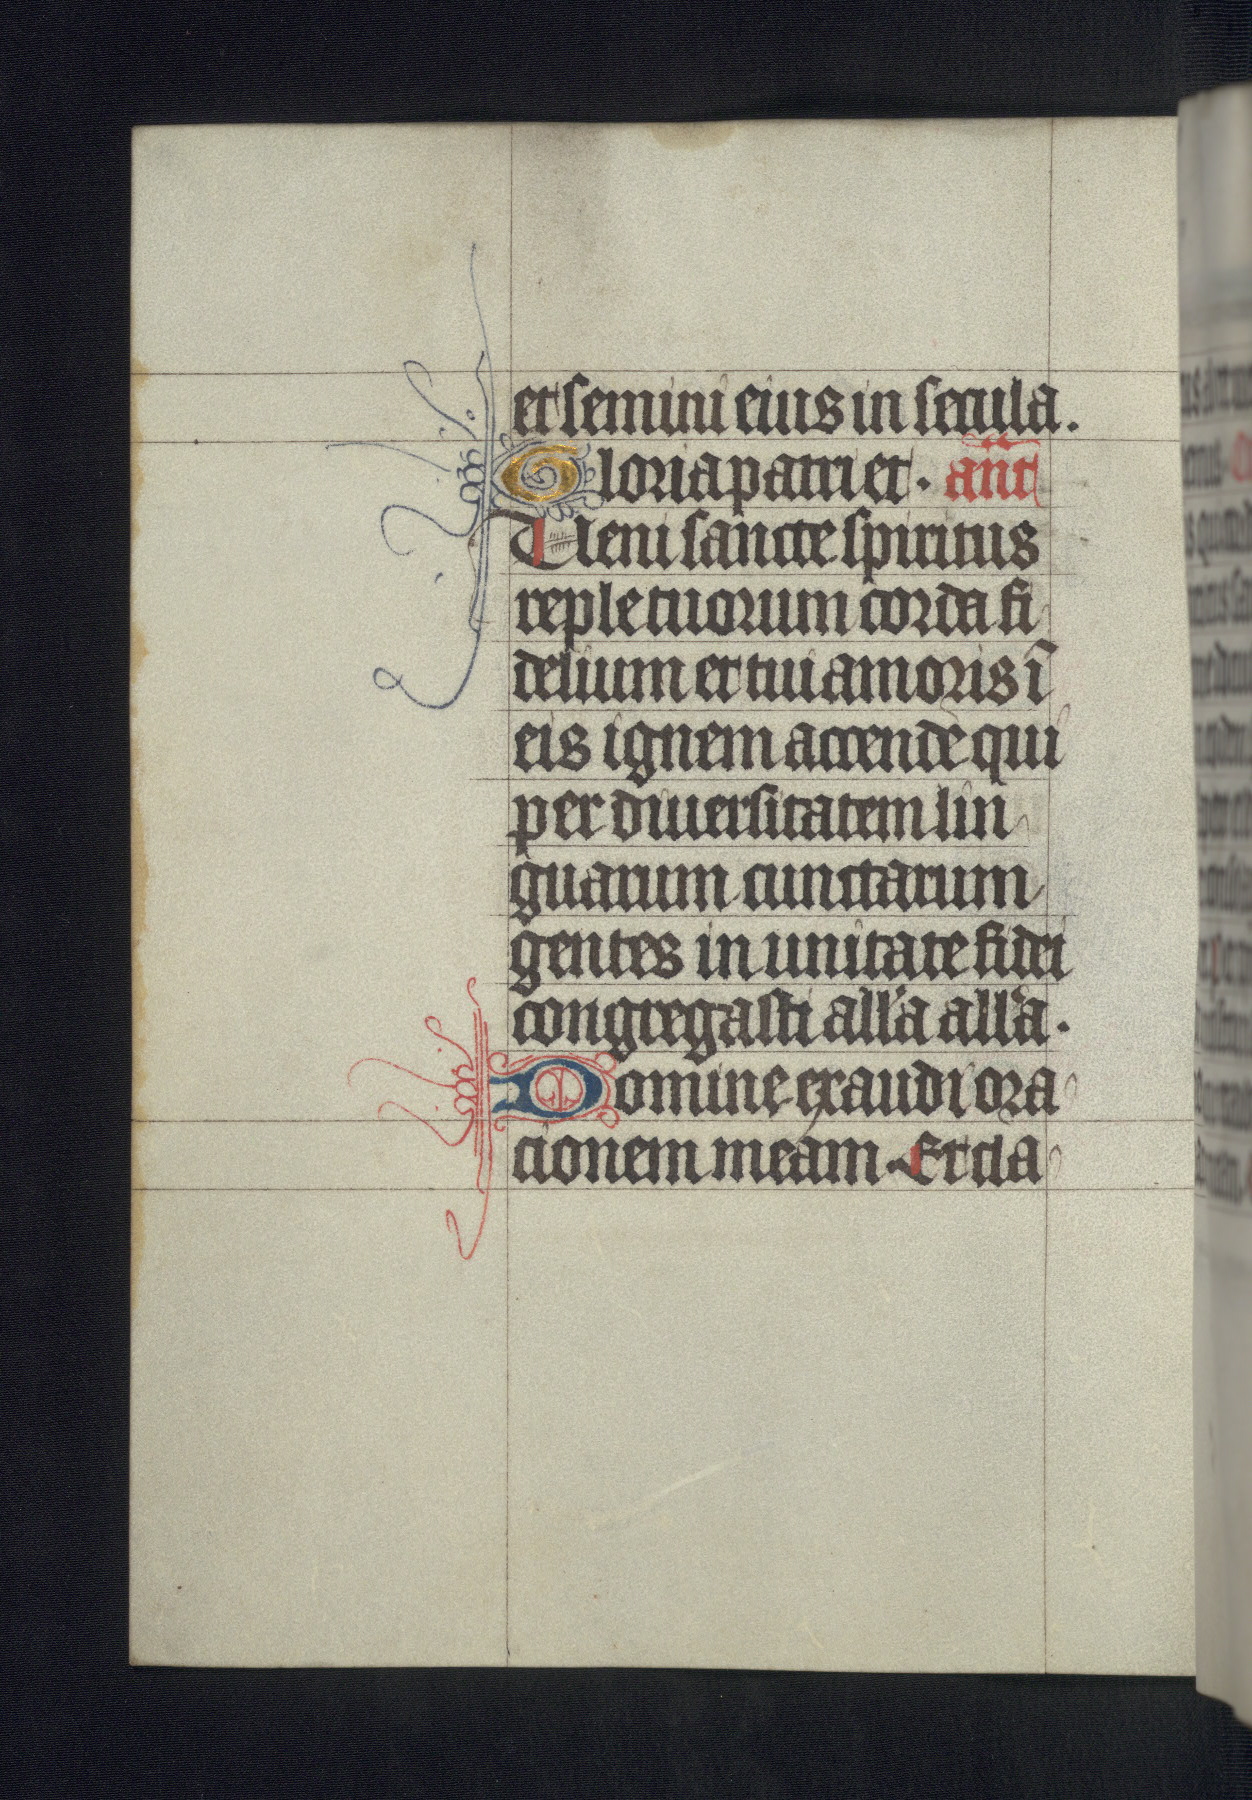 et semini eius in secula.
Gloria patri et. ant̄
Ueni sancte spiritus
reple tuorum corda fi
delium et tui amoris ī
eis ignem accende qui
per diuersitatem lin
guarum cunctarum
gentes in unitate fidei
congregasti all'a all'a.
Domine exaudi ora
cionem meam. Et cla